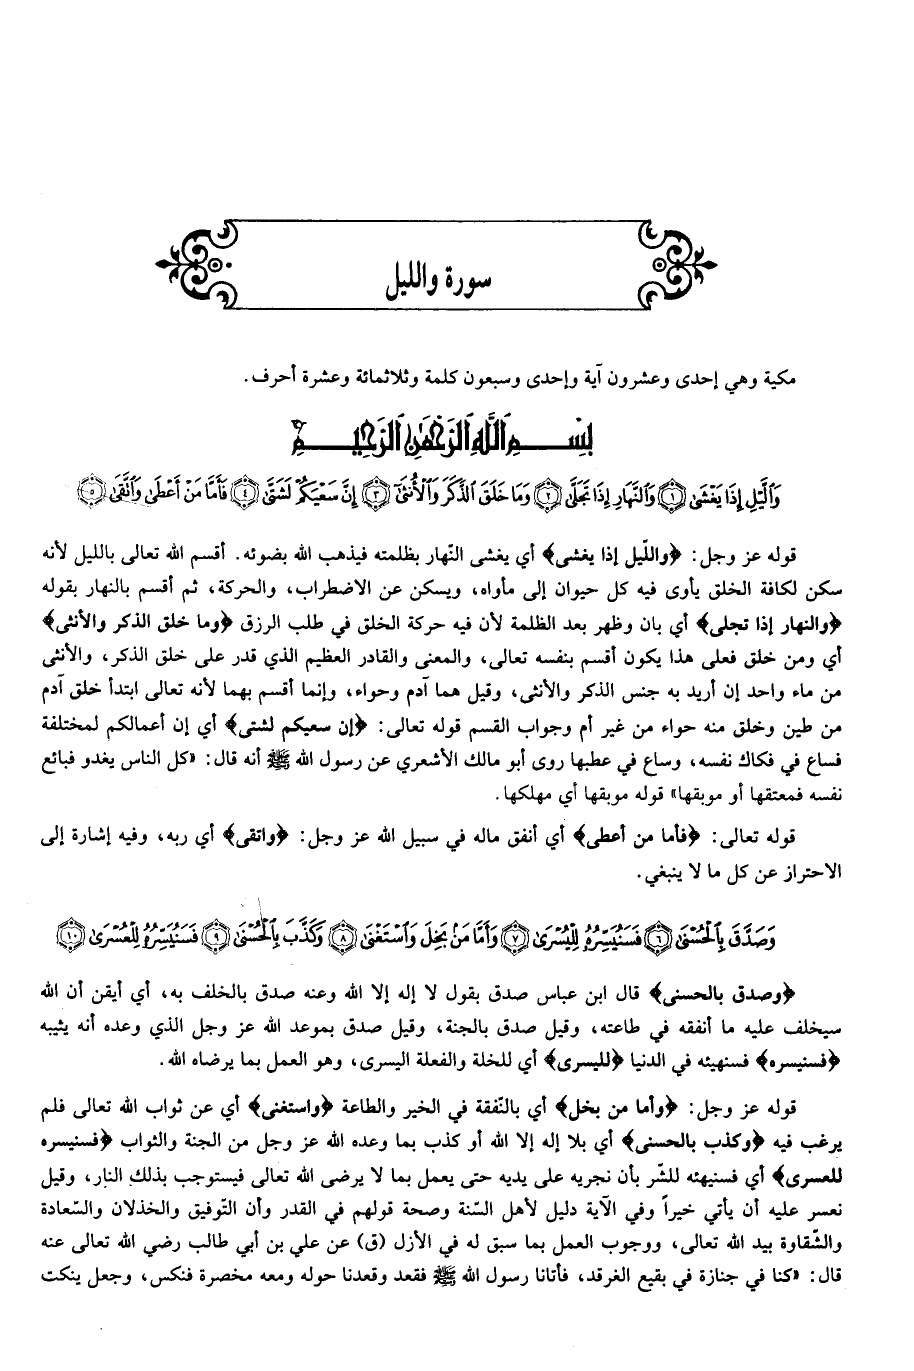 سورة والليل
مكية وهي إحدى وعشرون آية وإحدى وسبعون كلمة وثلاثمائة وعشرة أحرف.
بِسْمِ اللَّهِ الرَّحْمَٰنِ الرَّحِيمِ
وَٱلَّيْلِ إِذَا يَغْشَىٰ ﴿١﴾ وَٱلنَّهَارِ إِذَا تَجَلَّىٰ ﴿٢﴾ وَمَا خَلَقَ ٱلذَّكَرَ وَٱلْأُنثَىٰ ﴿٣﴾ إِنَّ سَعْيَكُمْ لَشَتَّىٰ ﴿٤﴾ فَأَمَّا مَنْ أَعْطَىٰ وَٱتَّقَىٰ ﴿٥﴾
قوله عز وجل: ﴿واللّيل إذا يغشى﴾ أي يغشى النّهار بظلمته فيذهب الله بضوئه. أقسم الله تعالى بالليل لأنه
سكن لكافة الخلق يأوى فيه كل حيوان إلى مأواه، ويسكن عن الاضطراب، والحركة، ثم أقسم بالنهار بقوله
﴿والنهار إذا تجلى﴾ أي بان وظهر بعد الظلمة لأن فيه حركة الخلق في طلب الرزق ﴿وما خلق الذكر والأنثى﴾
أي ومن خلق فعلى هذا يكون أقسم بنفسه تعالى، والمعنى والقادر العظيم الذي قدر على خلق الذكر، والأنثى
من ماء واحد إن أريد به جنس الذكر والأنثى، وقيل هما آدم وحواء، وإنما أقسم بهما لأنه تعالى ابتدأ خلق آدم
من طين وخلق منه حواء من غير أم وجواب القسم قوله تعالى: ﴿إن سعيكم لشتى﴾ أي إن أعمالكم لمختلفة
فساع في فكاك نفسه، وساع في عطبها روى أبو مالك الأشعري عن رسول الله ﷺ أنه قال: «كل الناس يغدو فبائع
نفسه فمعتقها أو موبقها» قوله موبقها أي مهلكها.
قوله تعالى: ﴿فأما من أعطى﴾ أي أنفق ماله في سبيل الله عز وجل: ﴿واتقى﴾ أي ربه، وفيه إشارة إلى
الاحتراز عن كل ما لا ينبغي.
وَصَدَّقَ بِٱلْحُسْنَىٰ ﴿٦﴾ فَسَنُيَسِّرُهُۥ لِلْيُسْرَىٰ ﴿٧﴾ وَأَمَّا مَنۢ بَخِلَ وَٱسْتَغْنَىٰ ﴿٨﴾ وَكَذَّبَ بِٱلْحُسْنَىٰ ﴿٩﴾ فَسَنُيَسِّرُهُۥ لِلْعُسْرَىٰ ﴿١٠﴾
﴿وصدق بالحسنى﴾ قال ابن عباس صدق بقول لا إله إلا الله وعنه صدق بالخلف به، أي أيقن أن الله
سيخلف عليه ما أنفقه في طاعته، وقيل صدق بالجنة، وقيل صدق بموعد الله عز وجل الذي وعده أنه يثيبه
﴿فسنيسره﴾ فسنهيئه في الدنيا ﴿لليسرى﴾ أي للخلة والفعلة اليسرى، وهو العمل بما يرضاه الله.
قوله عز وجل: ﴿وأما من بخل﴾ أي بالنّفقة في الخير والطاعة ﴿واستغنى﴾ أي عن ثواب الله تعالى فلم
يرغب فيه ﴿وكذب بالحسنى﴾ أي بلا إله إلا الله أو كذب بما وعده الله عز وجل من الجنة والثواب ﴿فسنيسره
للعسرى﴾ أي فسنيهئه للشّر بأن نجريه على يديه حتى يعمل بما لا يرضى الله تعالى فيستوجب بذلك النار، وقيل
نعسر عليه أن يأتي خيراً وفي الآية دليل لأهل السّنة وصحة قولهم في القدر وأن التّوفيق والخذلان والسّعادة
والشّقاوة بيد الله تعالى، ووجوب العمل بما سبق له في الأزل (ق) عن علي بن أبي طالب رضي الله تعالى عنه
قال: «كنا في جنازة في بقيع الغرقد، فأتانا رسول الله ﷺ فقعد وقعدنا حوله ومعه مخصرة فنكس، وجعل ينكت